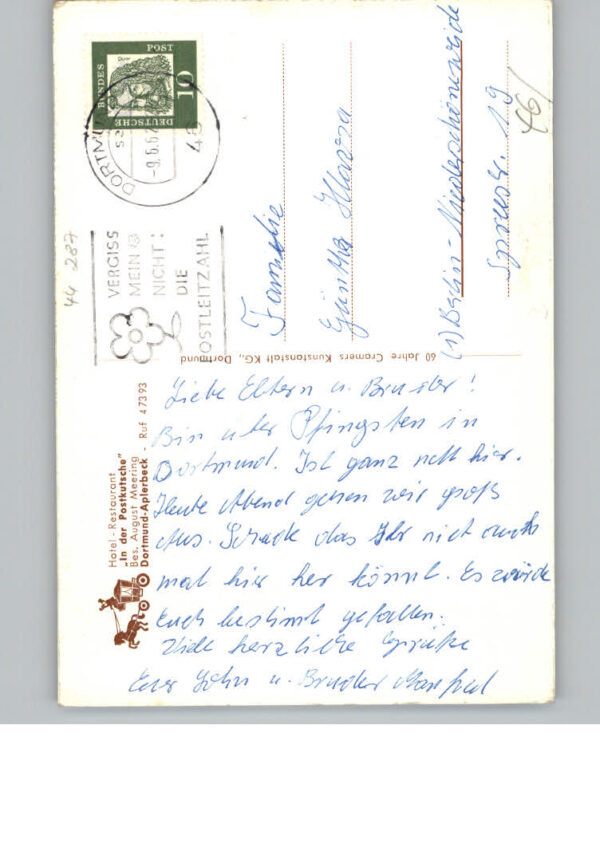 Liebe Eltern u. Bruder!
Bin über Pfingsten in
Dortmund. Ist ganz nett hier.
Heute Abend gehen wir groß
Aus. Schade das Ihr nicht auch
mal hier her könnt. Es würde
Euch bestimmt gefallen.
Viele herzliche Grüße
Euer Sohn u. Bruder Manfred
Hotel - Restaurant
„In der Postkutsche"
Bes. August Meering
Dortmund-Aplerbeck - Ruf 47393
60 Jahre Cramers Kunstanstalt KG., Dortmund
Familie
Günther
(1) Berlin-Niederschöneweide
Spreestr. 19
DEUTSCHE BUNDESPOST
10
DORTMUND
-9.6.62
VERGISS
MEIN
NICHT:
DIE
POSTLEITZAHL
44 287